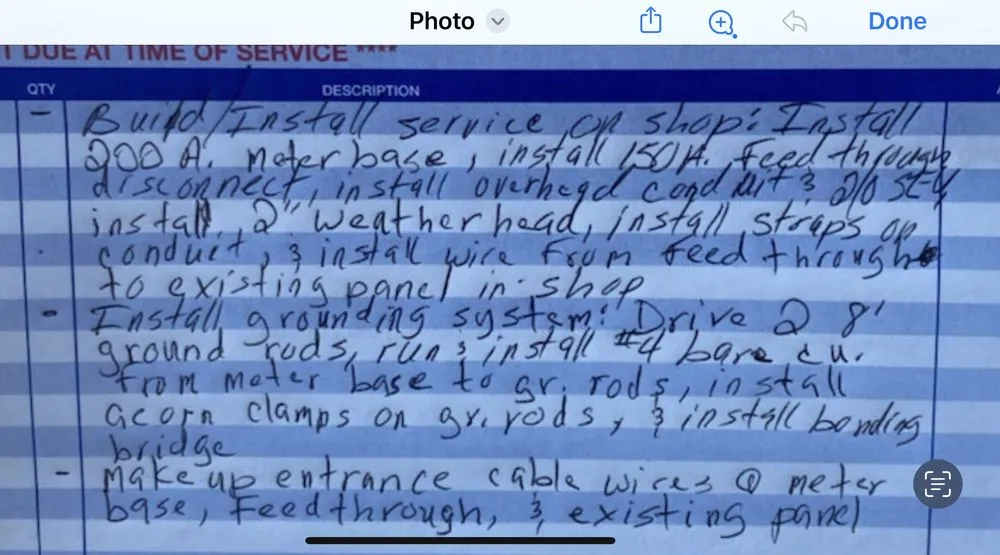 Photo
Done
T DUE AT TIME OF SERVICE ****
QTY DESCRIPTION
- Build/Install service on shop: Install
200 A. meter base, install 150 A. feed through
disconnect, install overhead conduit & 2/0 SE4
install 2" weatherhead, install straps on
conduit, & install wire from feed through
to existing panel in shop
- Install grounding system: Drive 2 8'
ground rods, run & install #4 bare cu.
from meter base to gr. rods, install
acorn clamps on gr. rods, & install bonding
bridge
- Make up entrance cable wires @ meter
base, Feedthrough, & existing panel